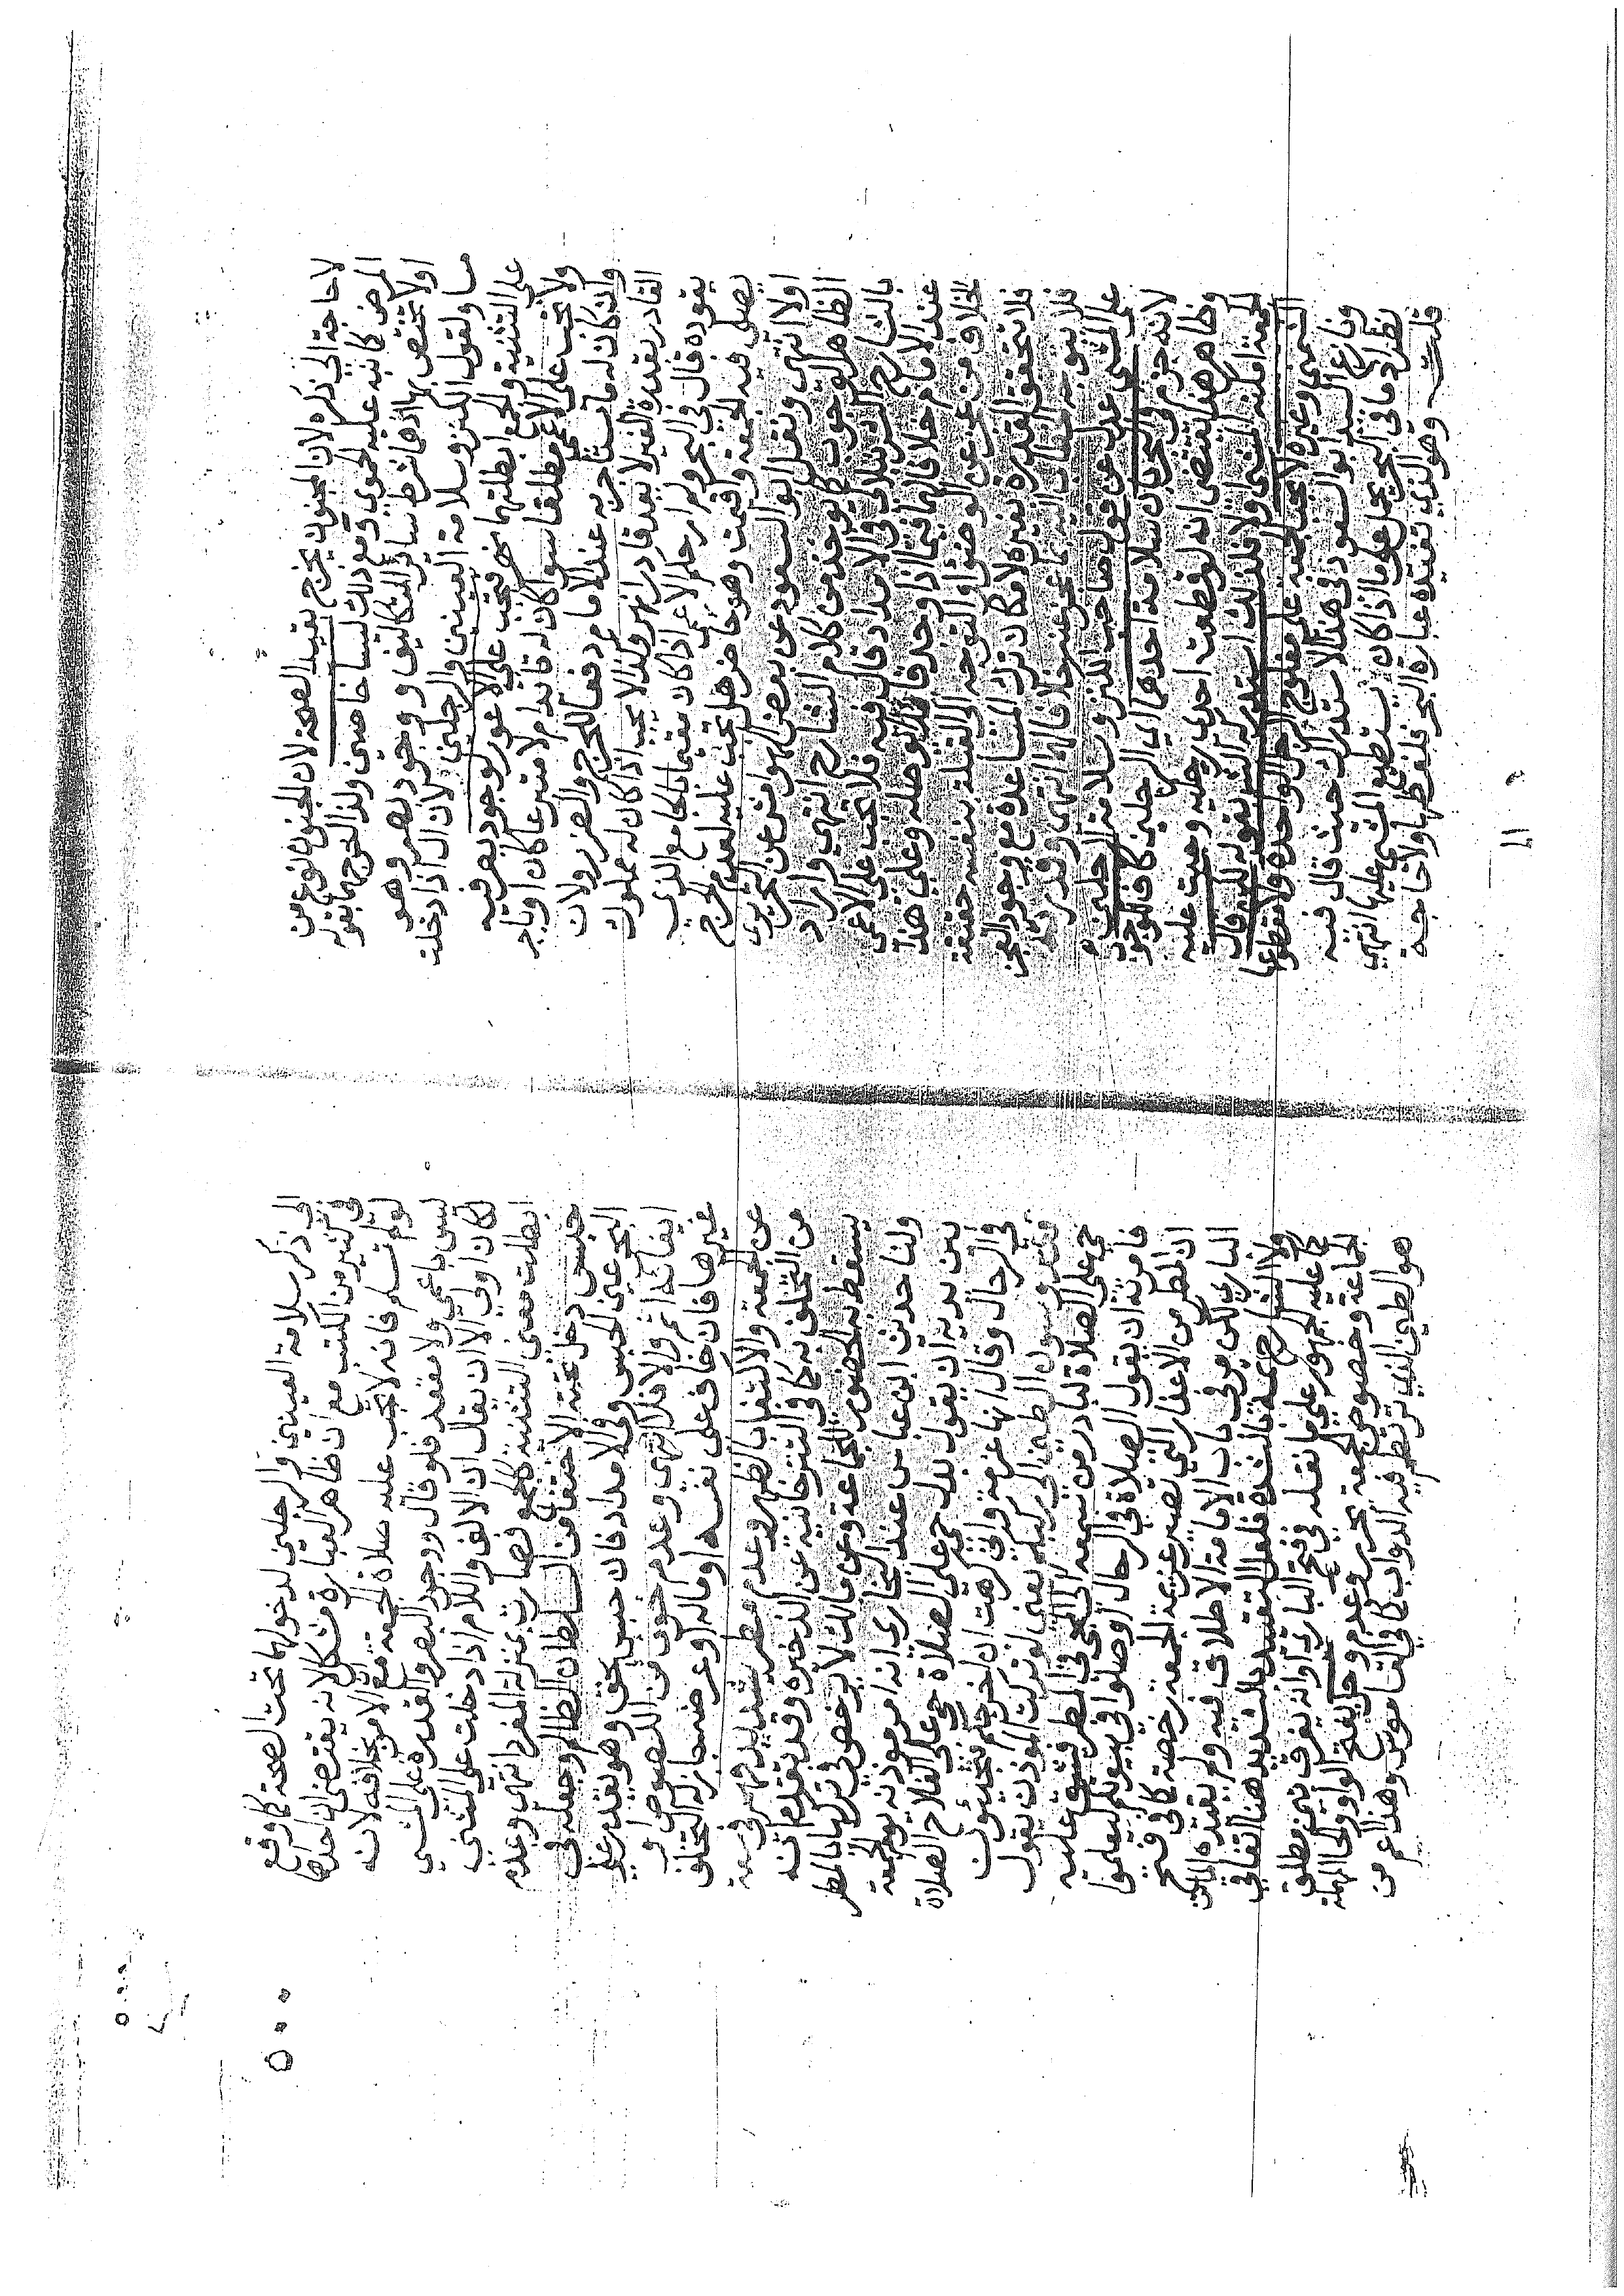 لا حاجة الى ذكره لان المجنون يخرج بقيد الصحة لان الجنون نوع من
المرض كما نبه عليه الحموي ومع ذلك ليسا خاصين ولذا اخرجهما بقوله
اولا تختص بها اذ هما شرط سائر التكاليف ووجود بصر وهو
مساو لقول الكنز وسلامة العينين والرجلين لان ال اذا دخلت
على التثنية والجمع ابطلتهما نهر فتجب على الاعور لوجود بصر فيه
ولا تجب على الاعمى مطلقا سواء كان له قايد ام لا متبرعا كان او باجر
وان كان له ما يستاجر به عند الامام دفعا للحرج والضرر ولان
القادر بقدرة الغير لا يعد قادرا نهر وكذا لا تجب اذا كان له مملوك
يقوده قال في البحر ولم ار حكم الاعمى اذا كان مقيما بالجامع الذي
يصلى فيه الجمعة واقيمت وهو حاضر هل تجب عليه لعدم الحرج
اولا انتهى ونقل ابو السعود عن بعض الهوامش عن
الظاهر الوجوب كما يوخذ من كلام الشارح انتهى واراد
بالشارح الشرنبلالي وفي الامداد قال فيه فلا تجب على الاعمى
عند الامام خلافا لهما فيما اذا وجد قائدا يوصله وعلى هذا
الخلاف من عجز عن الوضوء والتوجه الى القبلة بنفسه حقيقة
فلا تتحقق القدرة بغيره لامكان ترك المساعدة مع وجود العجز
فلا يتوجه الخطاب اليه مع عجز بنفسه خلافا لهما انتهى وقدرته
على المشي عدل عن قول صاحب الكنز وسلامة الرجلين
لانه جزم في البحر بان سلامة احدهما اي الرجلين كاف للوجوب
وظاهر هذا يقتضي انه لو قطعت احدى رجليه وجبت عليه
الجمعة امكنه المشي ام لا فلذلك استدركه الش بقوله لكن قال
الشمني وغيره لا تجب الجمعة على مفلوج الرجل الواحدة ولا مقطوعها
ونازع السيد ابو السعود في هذا الاستدراك حيث قال فيه
نظر اذ ما في البحر يحمل على ما اذا كان يستطيع المشي عليها انتهى
قلت وهو الذي تفيده عبارة البحر فلفظها ولا حاجة
الى ذكر سلامة العينين والرجلين لدخولهما تحت الصحة كما وقع
في كثير من الكتب مع ان ظاهر العبارة مشكل لانه يقتضي ان احداهما
لو لم تسلم فانه لا تجب عليه صلاة الجمعة مع الامر بخلافه لانه
ليس باعمى ولا مقعد فلو قال ووجود البصر والقدرة على المشي
لكان اولى الا ان يقال ان الالف واللام اذا دخلت على المثنى
ابطلت معنى التثنية كالجمع فصار بمنزلة المفرد انتهى وعدم
حبس دخل تحته الاختفاء من السلطان الظالم وجعله في
البحر عين الحبس وفي الامداد فان حبس بحق وهو يقدر على
ايفائه اثم والا فلا انتهى وعدم خوف من اللصوص او
غيرها فان خاف على نفسه او ماله او عرضه جاز له التخلف
عن الجمعة والاكتفا بالظهر وعدم مطر شديد نهر في سعة
من التخلف به كما في التترخانية عن الذخيرة وقد تقدم انه
يسقط به الحضور للجماعة وعن مالك لا يرخص في تركها بالمطر
ولنا حديث ابن عباس عند البخاري انه امر موذنه يوم الجمعة
بين يديه ان يقول بدل حي على الصلاة حي على الفلاح الصلاة
في الرحال وقال انها عزمة واني كرهت ان اخرجكم تجيئون
فتدوسون الطين الى ركبكم يعني لو تركت الموذن يقول
حي على الصلاة لبادر من سمعه الى المجي في المطر فيشق عليه
فامرته ان يقول الصلاة في الرحال اوصلوا في بيوتكم ليعلموا
ان المطر من الاعذار التي تصير عزيمة الجمعة رخصة كما في فتح
الباري لكن مر في باب الامامة الاطلاق فيه ولم يقيده الماتن
ولا الشارح ثمة بالشدة فلعل التقييد بالشديد هنا اتفاقي
كما عليه الجمهور على ما نقله في فتح الباري او انه يفرق بين مطلق
الجماعة وخصوص الجمعة يحرر وعدم وحل بفتح الواو والحا المهملة
هو الطين الذي ترتطم فيه الدواب كما في القاموس وهذا اعم من